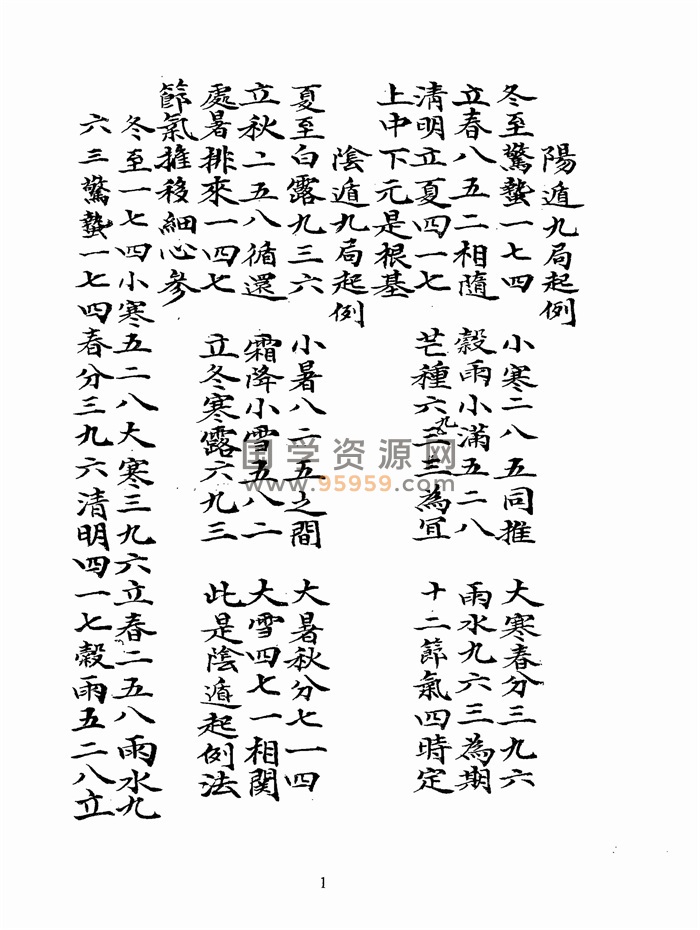 陽遁九局起例
冬至驚蟄一七四 小寒二八五同推 大寒春分三九六
立春八五二相隨 穀雨小滿五二八 雨水九六三為期
清明立夏四一七 芒種六三九三為宜 十二節氣四時定
上中下元是根基
陰遁九局起例
夏至白露九三六 小暑八二五之間 大暑秋分七一四
立秋二五八循還 霜降小雪五八二 大雪四七一相関
處暑排來一四七 立冬寒露六九三 此是陰遁起例法
節氣推移細心參
冬至一七四小寒五二八大寒三九六立春二五八雨水九
六三驚蟄一七四春分三九六清明四一七穀雨五二八立
国学资源网
www.95959.com
1